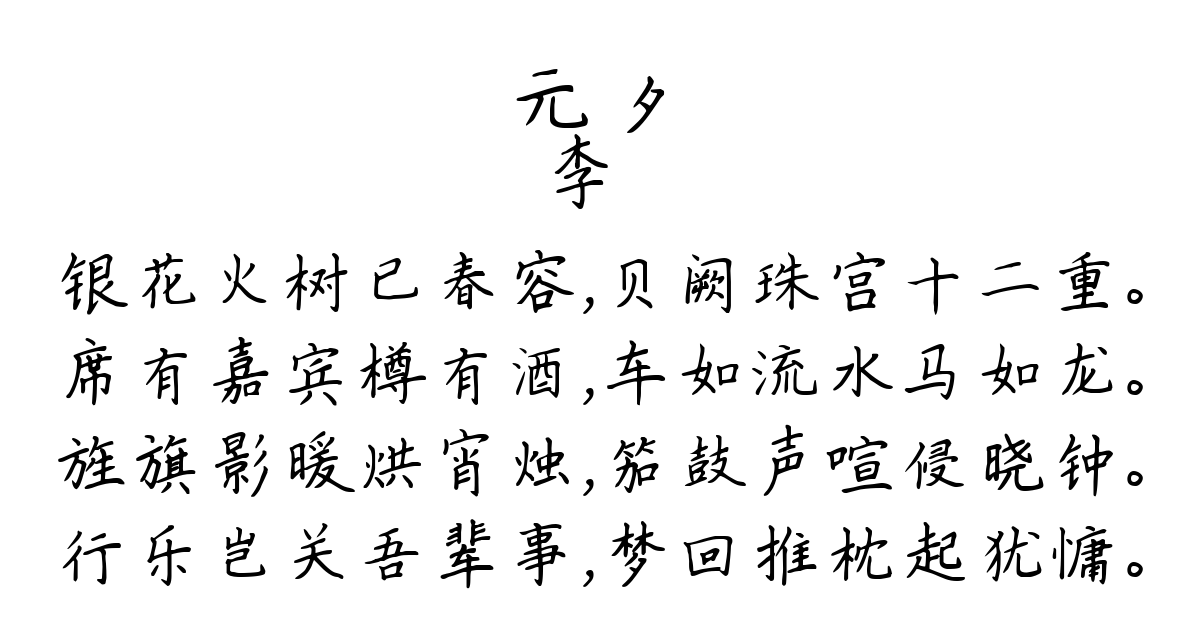 元夕
李
银花火树已春容,贝阙珠宫十二重。
席有嘉宾樽有酒,车如流水马如龙。
旌旗影暖烘宵烛,笳鼓声喧侵晓钟。
行乐岂关吾辈事,梦回推枕起犹慵。